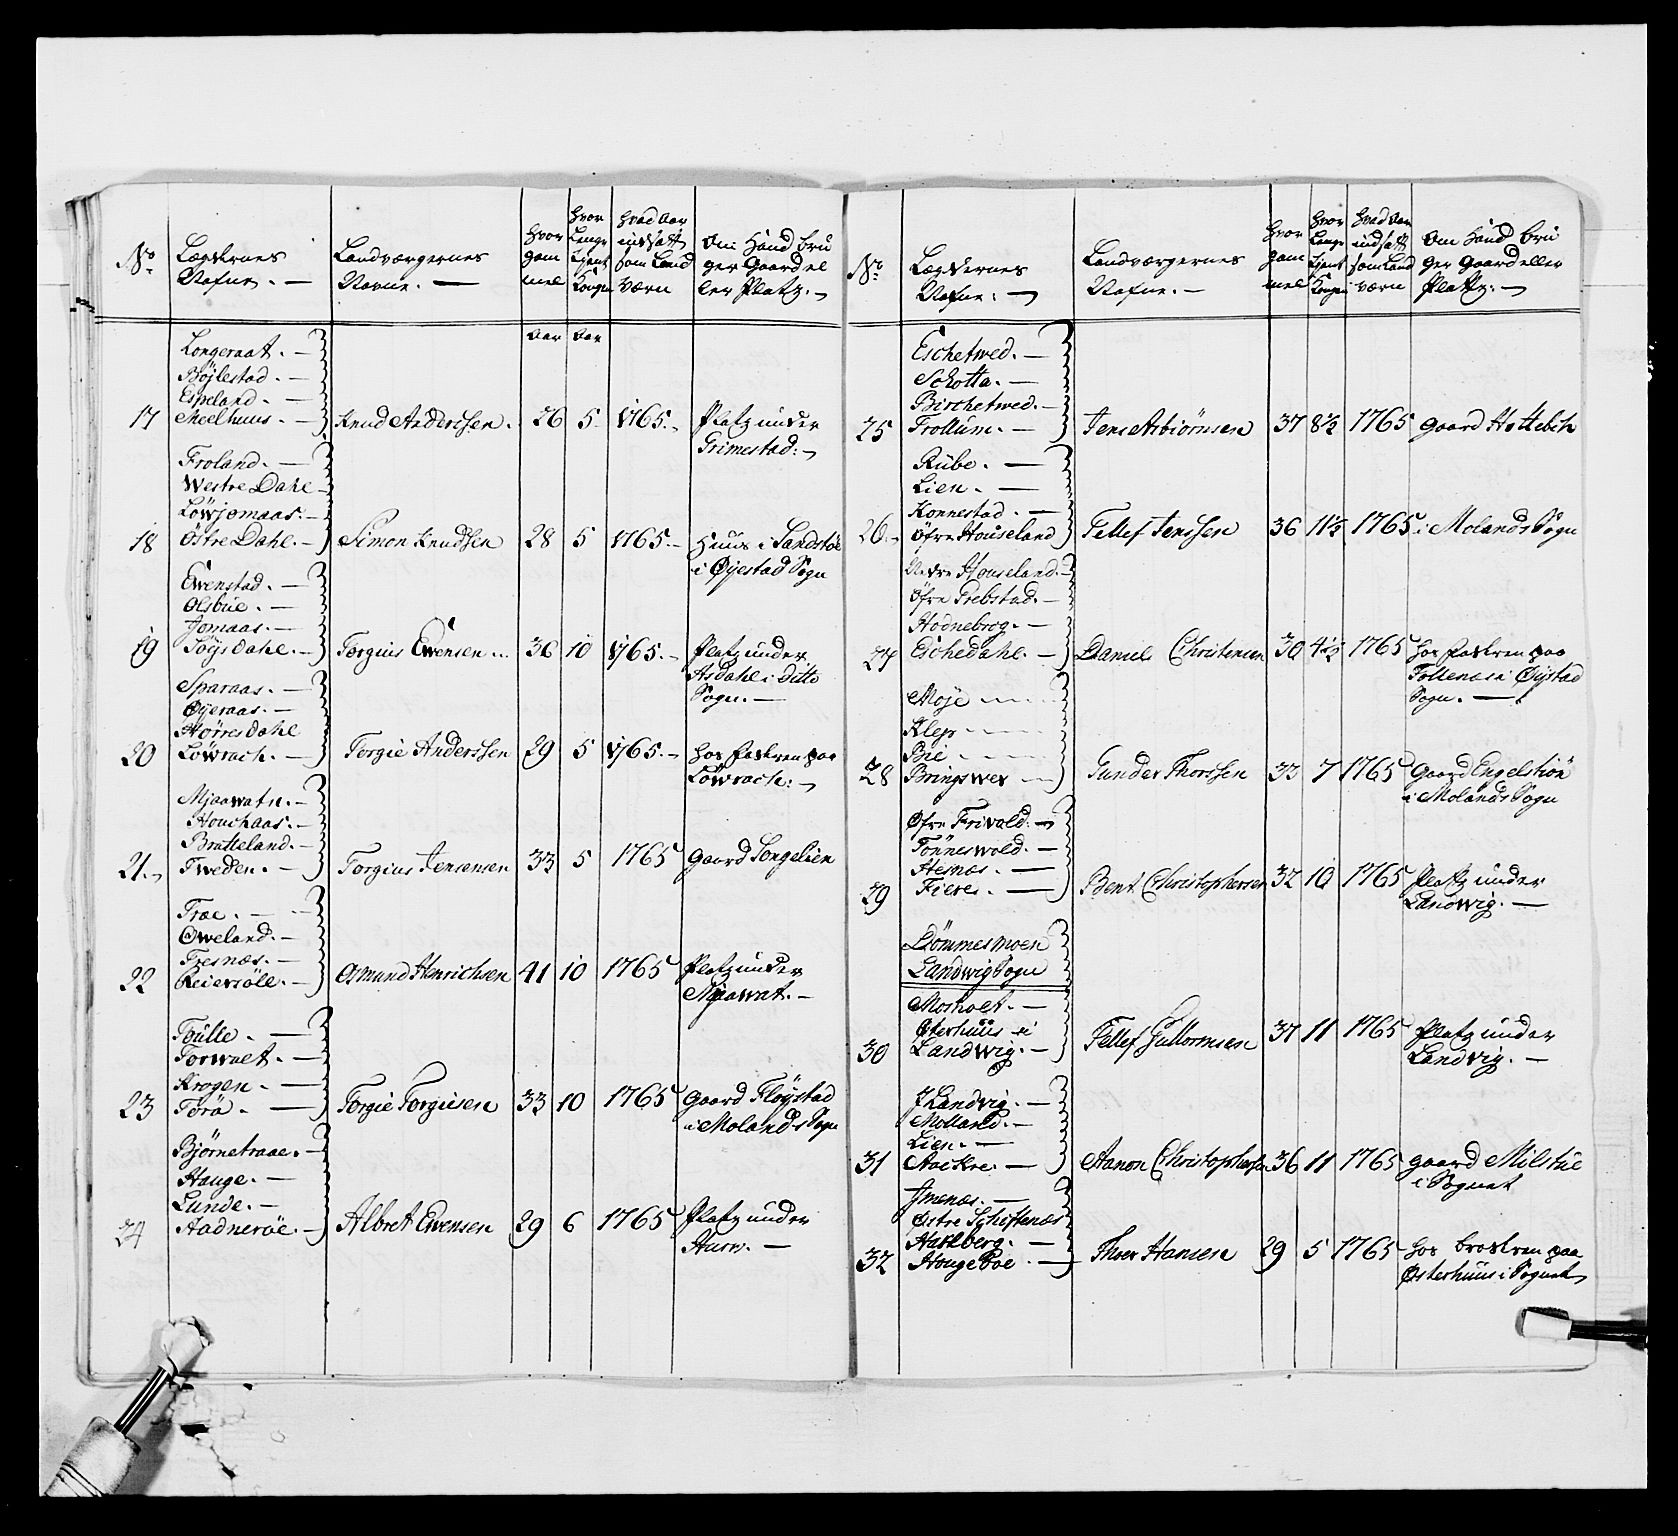 No
Lægdernes
Nafne. —
Landværgernes
Navne. —
Hvor
gam
mel
Hvor
Længe
tjent
Kongen
Hvad Aar
indsatt
som Land
værn
Om Hand bru
ger Gaard el
ler Platz. —
Aar Aar
Longeraat. —
Böjlestad. —
Espeland. —
17 Meelhuus. — Knud Anderssen. 26 5 1765. Platz under
Grimestad. —
Froland. —
Westre Dahl —
Löwjomaas. —
18 Östre Dahl. — Simon Knudsen 28 5 1765. — Huus i Sandstöe
i Øyestad Sogn
Ewenstad. —
Olsbue. —
Jomaas. —
19 Söys dahl. — Torgius Ewensen .. 36 10 1765. — Platz under
Asdahl i ditto
Sogn. —
Sparaas. —
Øyeraas. —
Hörresdahl
20 Löwrach. — Torgie Anderssen 29 5 1765. — hos fadren paa
Löwrach. —
Mjaawatn. —
Houchaas. —
Bratteland. —
21. Tweden. — Torgius Jensensen 33 5 1765 Gaard Songeleen
Trae. —
Oweland. —
Fresnæs. —
22 Reiersöle. — Osmund Henrichsen 41 10 1765 Platz under
Mjaawat. —
Toulle. —
Torwaet. —
Krogen. —
23 Torö. — Torgie Torgiusen 33 10 1765 Gaard Flöystad
i Molands Sogn
Bjørnetraae. —
Hauge. —
Lunde. —
24 Aadneröe. — Albret Ewensen 29 6 1765 Platz under
—
No
Lægdernes
Nafne. —
Landværgernes
Nafne. —
Hvor
gam
mel
Hvor
Længe
tjent
Kongen
Hvad Aar
indsatt
som Land
værn
Om Hand bru
ger Gaard eller
Platz. —
Eschetwed. —
Schotta. —
Birchetwed. —
25 Trollum. — Jens Asbiörnsen 37 8½ 1765 Gaard
Rübe. —
Lien. —
Konnestad. —
26. Öfre Houseland Tellef Jenssen 36 11½ 1765 i Molands Sogn
Nedre Houseland. —
Öfre Trebstad. —
Hodnebrog. —
27 Eschedahl. — Daniel Christensen 30 4½ 1765 hos fadren paa
Tollenæs i Öyestad
Sogn. —
Moje —
Klep —
Bie —
28 Bringswer — Gunder Thorssen 33 7 1765 Gaard Engelstiön
i Molands Sogn
Öfre Friwold. —
Tönneswold. —
Hesnæs. —
29 Fieres. — Bent Christophersen 32 10 1765 Platz under
Landwig. —
Dömmesmoen
Landwig Sogn
Morholt. —
Østerhüüs i
30 Landwig. — Tellef Gullormsen 37 11 1765 Platz under
Landvig. —
I Landvig. —
Molland. —
Lien. —
31 Aackre. — Aanon Christophersen 36 11 1765 gaard Milstüe
i Sognet
Imenæs. —
Østre Schiftenæs
Hachberg. —
32 Hougeboe. — Thoer Hansen 29 5 1765 hos brodren paa
Østerhuus i Sognet